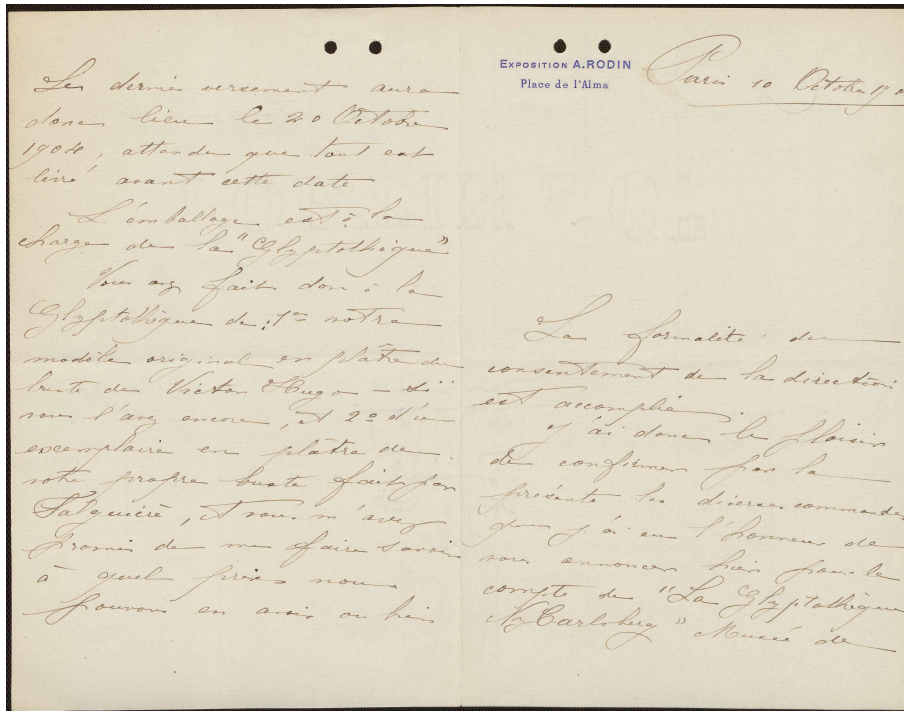 Le dernier versement aura
donc lieu le 20 Octobre
1904, attendu que tout est
livré avant cette date
L'emballage est à la
charge de la "Glyptothèque"
Vous avez fait don à la
Glyptothèque de: 1er votre
modèle original en plâtre du
buste de Victor Hugo – si
vous l'avez encore, et 2o d'un
exemplaire en plâtre de
votre propre buste fait par
Falguière, et vous m'avez
promis de me faire savoir
à quel prix nous
pouvons en avoir ou bien
EXPOSITION A. RODIN
Place de l'Alma
Paris 10 Octobre 19
La formalité du
consentement de la direction
est accomplie.
J'ai donc le plaisir
de confirmer par la
présente les diverses commandes
que j'ai eu l'honneur de
vous annoncer hier pour le
compte de "La Glyptothèque
Ny Carlsberg" Musée de